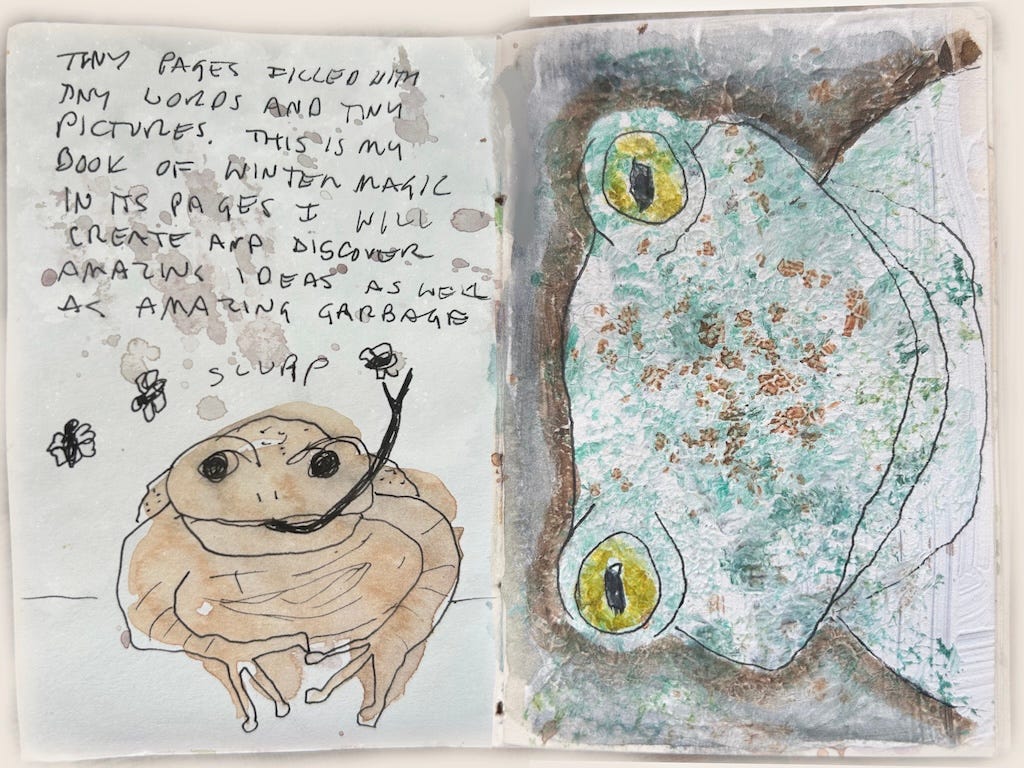 TINY PAGES FILLED WITH
TINY WORDS AND TINY
PICTURES. THIS IS MY
BOOK OF WINTER MAGIC
IN ITS PAGES I WILL
CREATE AND DISCOVER
AMAZING IDEAS AS WELL
AS AMAZING GARBAGE
SLURP